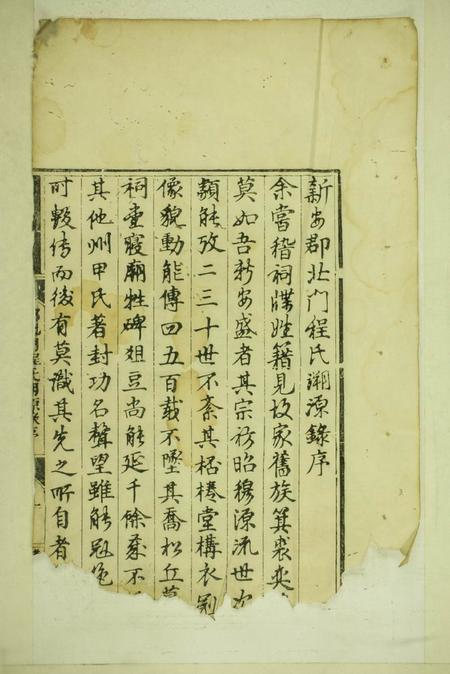 新安郡北门程氏溯源錄序
余嘗稽祠牒姓籍見故家舊族箕裘奕
莫如吾新安盛者其宗祊昭穆源流世次
類能攷二三十世不紊其桮棬堂構衣冠
像貌動能傳四五百載不墜其喬松丘墓
祠堂寢廟牲碑俎豆尚能延千餘祀不
其他州甲氏著封功名聲望雖能冠絶
时数傳而後有莫識其先之所自者